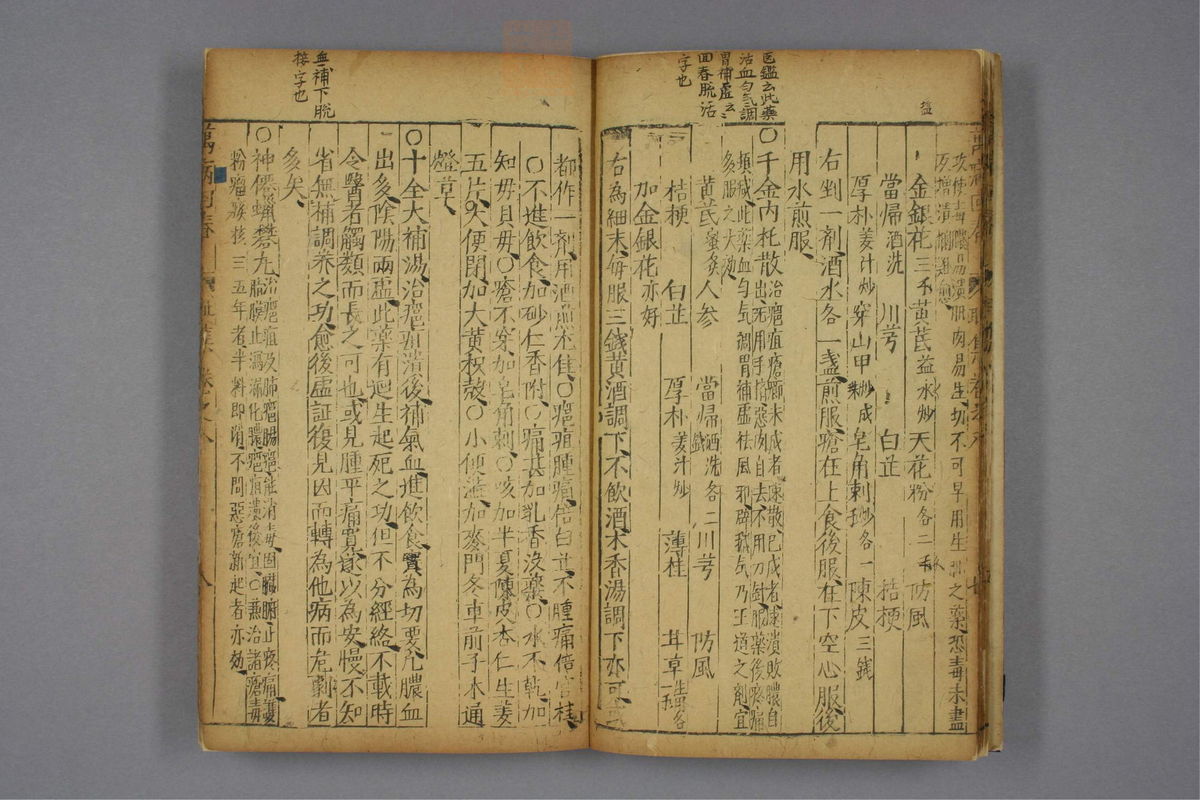 医鑑云此藥
活血勻氣調
胃補虛云云
回春脫活
字也
攻使毒 肌肉易生切不可早用生肌之藥恐毒未盡
反增潰爛
金銀花三 黃芪益水炒 天花粉各二 防風
當歸酒洗 川芎 白芷 桔梗
厚朴姜汁炒 穿山甲炒成 皂角刺炒各一 陳皮三錢
右剉一劑酒水各一盞煎服瘡在上食後服在下空心服後
用水煎服
○千金內托散治癰疽瘡癤未成者速散已成者速潰敗膿自
出无用手擠惡肉自去不用刀針服藥後疼痛
頓減此藥血勻氣調胃補虛祛風邪辟穢气乃王道之劑宜
多服之大効
黃芪蜜炙 人参 當歸酒洗各二錢 川芎 防風
桔梗 白芷 厚朴姜汁炒 薄桂 甘草生各一
加金銀花亦好
右為細末每服三錢黃酒調下不飲酒木香湯調下亦可
血補下脫
接字也
都作一劑用酒煎尤佳○癰疽腫痛倍白芷不腫痛倍官桂
○不進飲食加砂仁香附○痛甚加乳香沒藥○水不乾加
知母貝母○瘡不穿加皂角刺○咳加半夏陳皮杏仁生姜
五片○大便閉加大黃枳殼○小便澁加麥門冬車前子木通
燈草
○十全大補湯治癰疽潰後補氣血進飲食實為切要凡膿血
出多陰陽兩虛此藥有迴生起死之功但不分經絡不載時
令醫者觸類而長之可也或見腫平痛寬遂以為安慢不知
省無補調养之功愈後虛証復見因而轉為他病而危劇者
多矣
○神僊蠟礬丸治癰疽及肺癰腸癰能消毒固臟腑止疼痛護
膈膜止瀉 化膿癰疽潰後宜○兼治諸瘡毒
粉瘤瘰核三五年者半料即消不問惡瘡新起者亦効